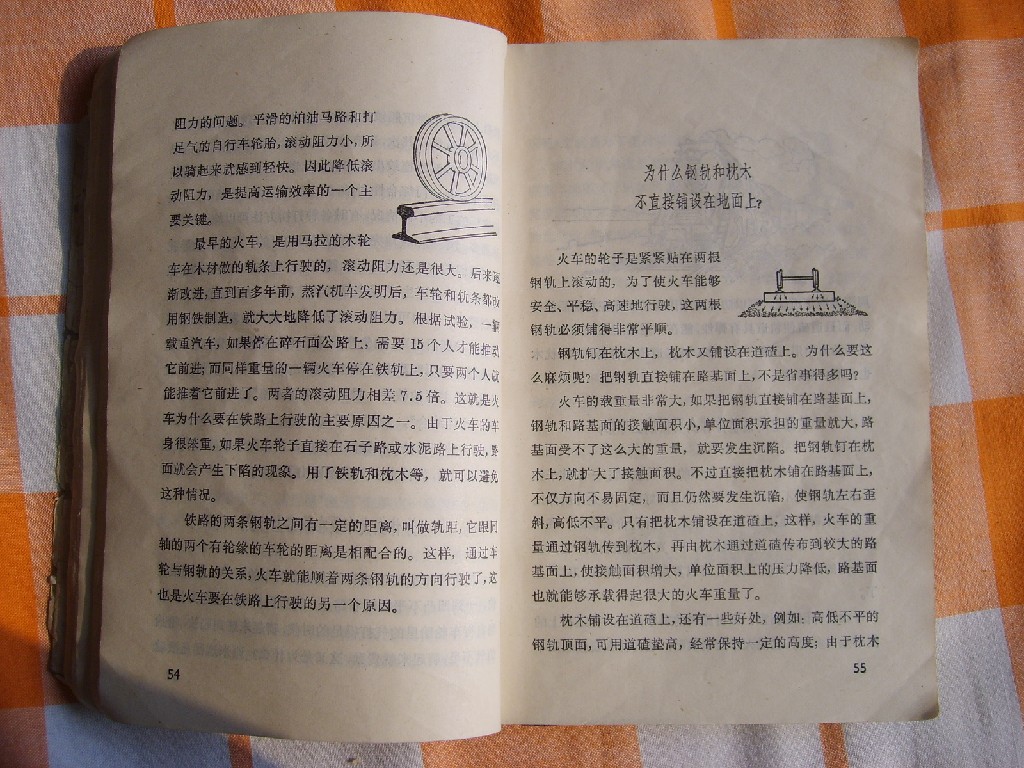 阻力的问题。平滑的柏油马路和打
足气的自行车轮胎，滚动阻力小，所
以骑起来就感到轻快。因此降低滚
动阻力，是提高运输效率的一个主
要关键。
最早的火车，是用马拉的木轮
车在木材做的轨条上行驶的，滚动阻力还是很大。后来逐
渐改进，直到百多年前，蒸汽机车发明后，车轮和轨条都改
用钢铁制造，就大大地降低了滚动阻力。根据试验，一辆
载重汽车，如果停在碎石面公路上，需要15个人才能推动
它前进；而同样重量的一辆火车停在铁轨上，只要两个人就
能推着它前进了。两者的滚动阻力相差7.5倍。这就是火
车为什么要在铁路上行驶的主要原因之一。由于火车的车
身很笨重，如果火车轮子直接在石子路或水泥路上行驶，路
面就会产生下陷的现象。用了铁轨和枕木等，就可以避免
这种情况。
铁路的两条钢轨之间有一定的距离，叫做轨距，它跟同
轴的两个有轮缘的车轮的距离是相配合的。这样，通过车
轮与钢轨的关系，火车就能顺着两条钢轨的方向行驶了，这
也是火车要在铁路上行驶的另一个原因。
54
为什么钢轨和枕木
不直接铺设在地面上？
火车的轮子是紧紧贴在两根
钢轨上滚动的，为了使火车能够
安全、平稳、高速地行驶，这两根
钢轨必须铺得非常平顺。
钢轨钉在枕木上，枕木又铺设在道碴上。为什么要这
么麻烦呢？把钢轨直接铺在路基面上，不是省事得多吗？
火车的载重量非常大，如果把钢轨直接铺在路基面上，
钢轨和路基面的接触面积小，单位面积承担的重量就大，路
基面受不了这么大的重量，就要发生沉陷。把钢轨钉在枕
木上，就扩大了接触面积。不过直接把枕木铺在路基面上，
不仅方向不易固定，而且仍然要发生沉陷，使钢轨左右歪
斜，高低不平。只有把枕木铺设在道碴上，这样，火车的重
量通过钢轨传到枕木，再由枕木通过道碴传布到较大的路
基面上，使接触面积增大，单位面积上的压力降低，路基面
也就能够承载得起很大的火车重量了。
枕木铺设在道碴上，还有一些好处，例如：高低不平的
钢轨顶面，可用道碴垫高，经常保持一定的高度；由于枕木
55